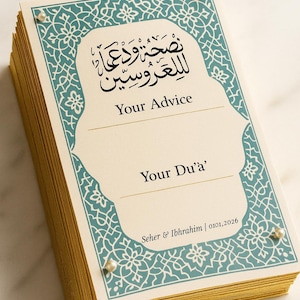 نصيحة ودعاء
للعروسين
Your Advice
Your Du'a'
Seher & Ibhrahim | 0101.2026